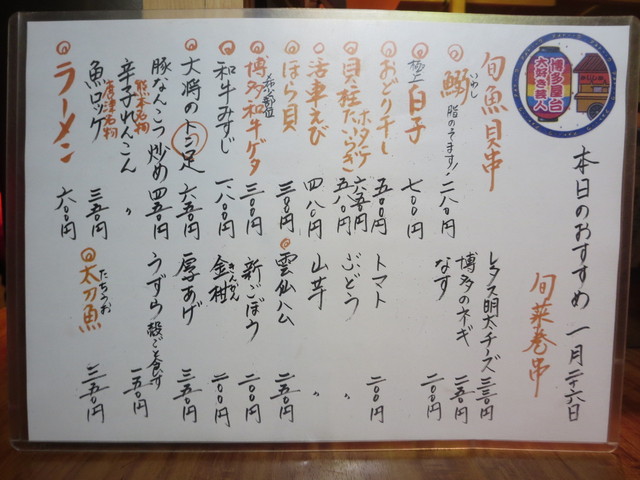 博多屋台
大好き職人
本日のおすすめ 一月二十六日
旬魚貝串
鰯 いわし 脂のってます! 二八〇円
極上 白子 七〇〇円
おどり干し 五〇〇円
ホタテ 六五〇円
貝柱たいらぎ 五八〇円
活車えび 四八〇円
ほら貝 三〇〇円
希少部位
博多和牛ゲタ 三〇〇円
和牛みすじ 一八〇〇円
大将のトン足 六五〇円
豚なんこつ炒め 四五〇円
熊本名物
辛子れんこん 〃
唐津名物
魚ロッケ 三五〇円
ラーメン 六〇〇円
旬菜巻串
レタス明太チーズ 三三〇円
博多のネギ 二五〇円
なす 二〇〇円
トマト 二〇〇円
ごどう 〃
山芋 〃
雲仙ハム 二五〇円
新ごぼう 二〇〇円
金柑 きんかん 二〇〇円
厚あげ 三五〇円
うずら 殻ごと食す 一五〇円
太刀魚 たちうお 三五〇円